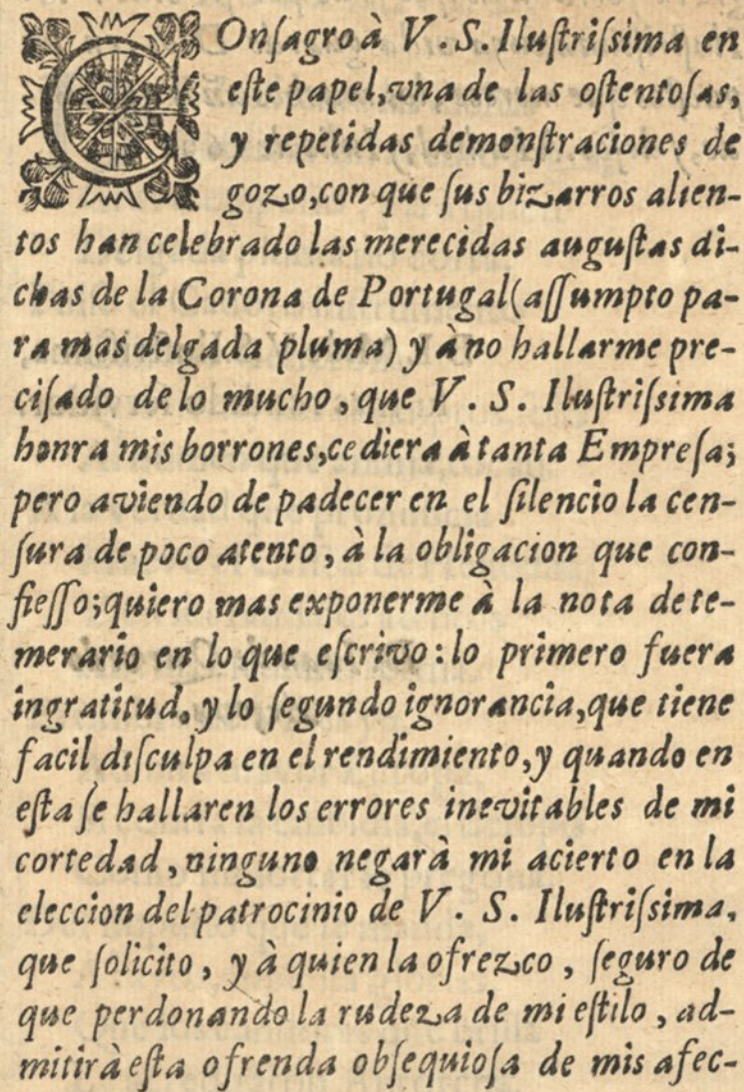 COnſagro à V. S. Iluſtriſsima en
eſte papel, vna de las oſtentoſas,
y repetidas demonſtraciones de
gozo, con que ſus bizarros alien-
tos han celebrado las merecidas auguſtas di-
chas de la Corona de Portugal (aſſumpto pa-
ra mas delgada pluma) y à no hallarme pre-
ciſado de lo mucho, que V. S. Iluſtriſsima
honra mis borrones, cediera à tanta Empreſa;
pero aviendo de padecer en el ſilencio la cen-
ſura de poco atento, à la obligacion que con-
fieſſo; quiero mas exponerme à la nota de te-
merario en lo que eſcrivo: lo primero fuera
ingratitud, y lo ſegundo ignorancia, que tiene
facil diſculpa en el rendimiento, y quando en
eſta ſe hallaren los errores inevitables de mi
cortedad, ninguno negarà mi acierto en la
eleccion del patrocinio de V. S. Iluſtriſsima,
que ſolicito, y à quien la ofrezco, ſeguro de
que perdonando la rudeza de mi eſtilo, ad-
mitirà eſta ofrenda obſequioſa de mis afec-